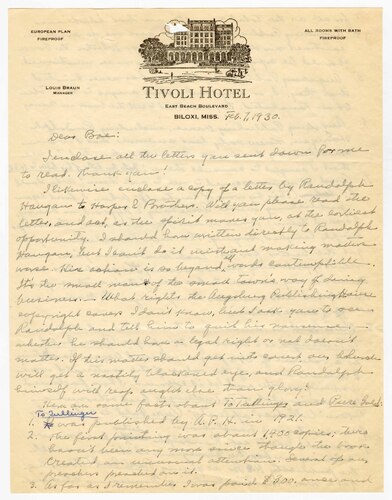 EUROPEAN PLAN
FIREPROOF
ALL ROOMS WITH BATH
FIREPROOF
LOUIS BRAUN
MANAGER
TIVOLI HOTEL
EAST BEACH BOULEVARD
BILOXI, MISS. Feb. 7, 1930.
Dear Boe:
I enclose all the letters you sent down for me
to read. Thank you!
I likewise enclose a copy of a letter by Randolph
Haugan to Harper & Brothers. Will you please read the
letter, and act, as the spirit moves you, at the earliest
opportunity. I should have written directly to Randolph
Haugan, but I can't do it without making matters
worse. His action is so beyond words contemptible.
It's the small man of the small town's way of doing
business. — What rights the Augsburg Publishing House
copyright covers I don't know, but I ask you to
Randolph and tell him to quit his nonsense,
whether he should have a legal right or not doesn't
matter. If this matter should get into court our
will get a nastily blackened eye, and Randolph
himself will reap aught else than glory!
Here are some facts about To Tullinger and Pure Gold:
To Tullinger
1. was published by A. P. H. in 1921.
2. The first printing was about 1900 copies; two
hasn't been any more since though the book
created an unusual attention. Several of our
papers on it.
3. As far as I remember I was paid $300. once and